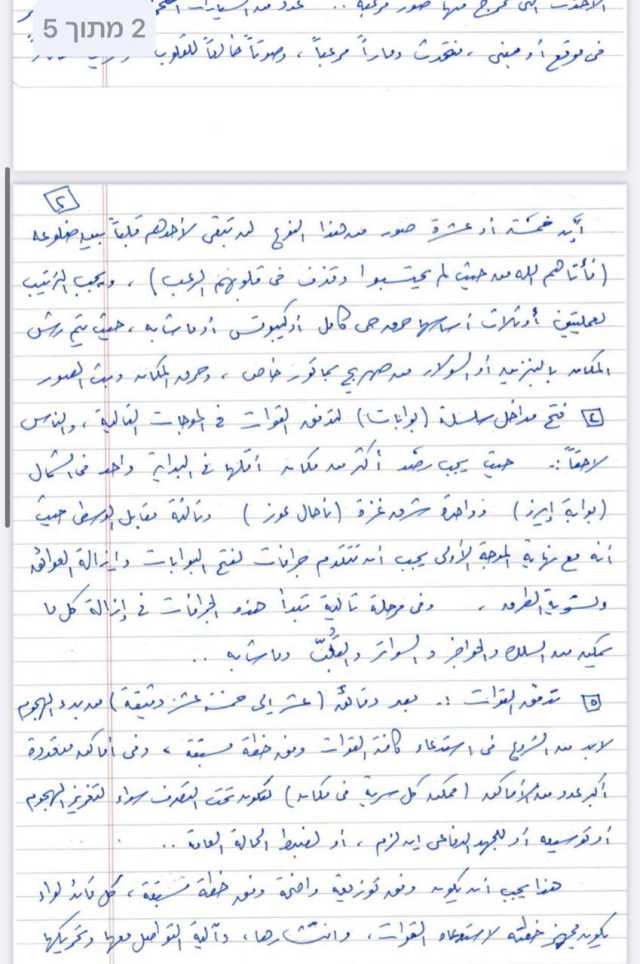 2 מתוך 5
صور مرعبة .. عدد من السيارات
في موقع أو مبنى ، فتحدث دماراً مرعباً ، وصوتاً خالعاً للقلوب
٢
أيّ خمسة أو عشرة صور من هذا النوع لن تبقي لأحدهم قلباً بين ضلوعه
(فأتاهم الله من حيث لم يحتسبوا وقذف في قلوبهم الرعب) ، ويجب الترتيب
لعمليتين أو ثلاث أساسها حرق حي كامل أو كيبوتس أو ما شابه ، حيث يتم رش
المكان بالبنزين أو السولار من صهريج بماتور خاص ، وحرق المكان وبث الصور
٤ فتح مداخل سلسلة (بوابات) لتدفق القوات في الموجات التالية ، والناس
لاحقاً :. حيث يجب رصد أكثر من مكان أقلها في البداية واحد في الشمال
(بوابة إيرز) وواحدة شرق غزة (ناحال عوز) وثالثة مقابل الوسطى حيث
أنه مع نهاية الموجة الأولى يجب أن تتقدم جرافات لفتح البوابات وإزالة العوائق
وتسوية الطرق ، وفي مرحلة تالية تبدأ هذه الجرافات في إزالة كل ما
يمكن من السلك والحواجز والسواتر وما شابه ..
٥ تدفق القوات :. بعد دقائق (عشر إلى خمسة عشر دقيقة) من بدء الهجوم
لابد من الشروع في استدعاء كافة القوات وفق خطة مسبقة ، وفي أماكن متعددة
أكبر عدد من الأماكن (ممكن كل سرية في مكان) لتكون تحت التصرف سواء لتعزيز الهجوم
أو توسيعه أو للجهد الدفاعي إن لزم ، أو لضبط الحالة العامة ..
هذا يجب أن يكون وفق توزيعة واضحة وفق خطة مسبقة ، كل قائد لواء
يكون مجهز خطته لاستدعاء القوات ، وانتشارها ، وآلية التواصل معها وتحريكها